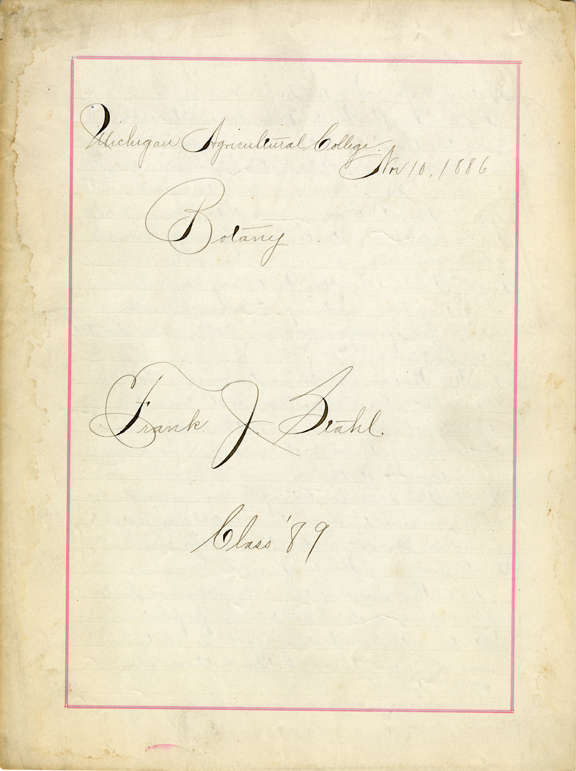 Michigan Agricultural College.
Nov 10, 1886
Botany
Frank J. Stahl.
Class '89